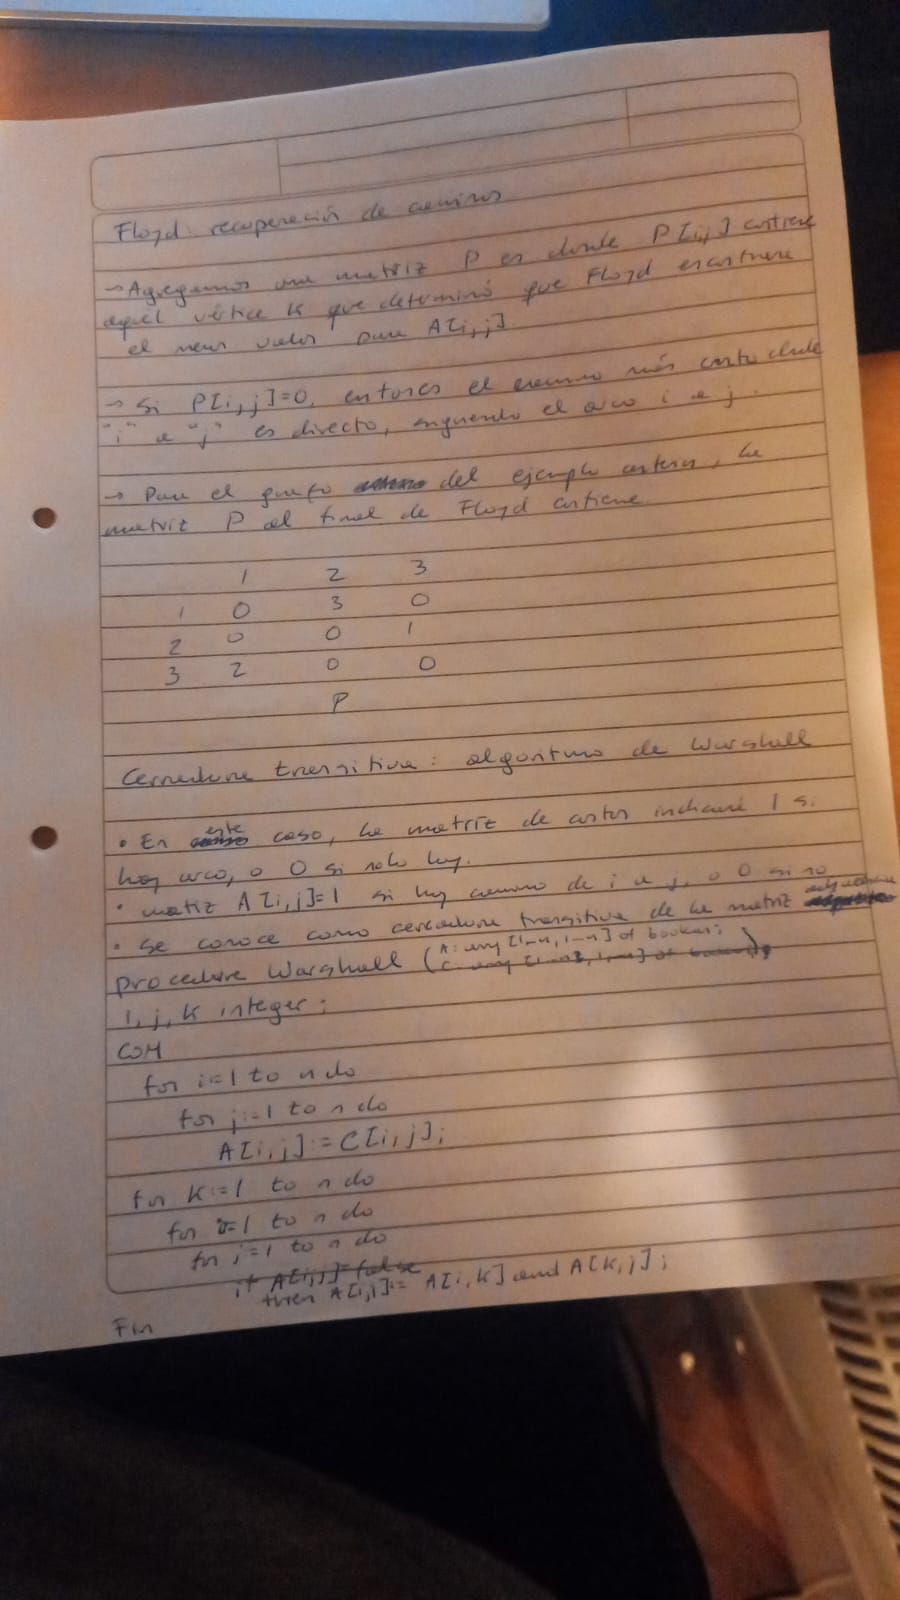 Floyd: recuperación de caminos
→ Agregamos una matriz P en donde P[i,j] contiene
aquel vértice K que determinó que Floyd encontrara
el menor valor para A[i,j]
→ Si P[i,j]=0, entonces el camino más corto desde
"i" a "j" es directo, siguiendo el arco i a j.
→ Para el grafo del ejemplo anterior, la
matriz P al final de Floyd contiene
1 2 3
1 0 3 0
2 0 0 1
3 2 0 0
P
Cerradura transitiva: algoritmo de Warshall
• En este caso, la matriz de costos indicará 1 si
hay arco, o 0 si no lo hay.
• matriz A[i,j]=1 si hay camino de i a j, o 0 si no
• Se conoce como cerradura transitiva de la matriz adyacencia
procedure Warshall (A: array [1-n, 1-n] of boolean;
C: array [1-n, 1-n] of boolean);
i, j, K integer;
COM
for i=1 to n do
for j:=1 to n do
A[i,j]:= C[i,j];
for K:=1 to n do
for i=1 to n do
for j=1 to n do
if A[i,j]=false
then A[i,j]:= A[i,K] and A[K,j];
Fin